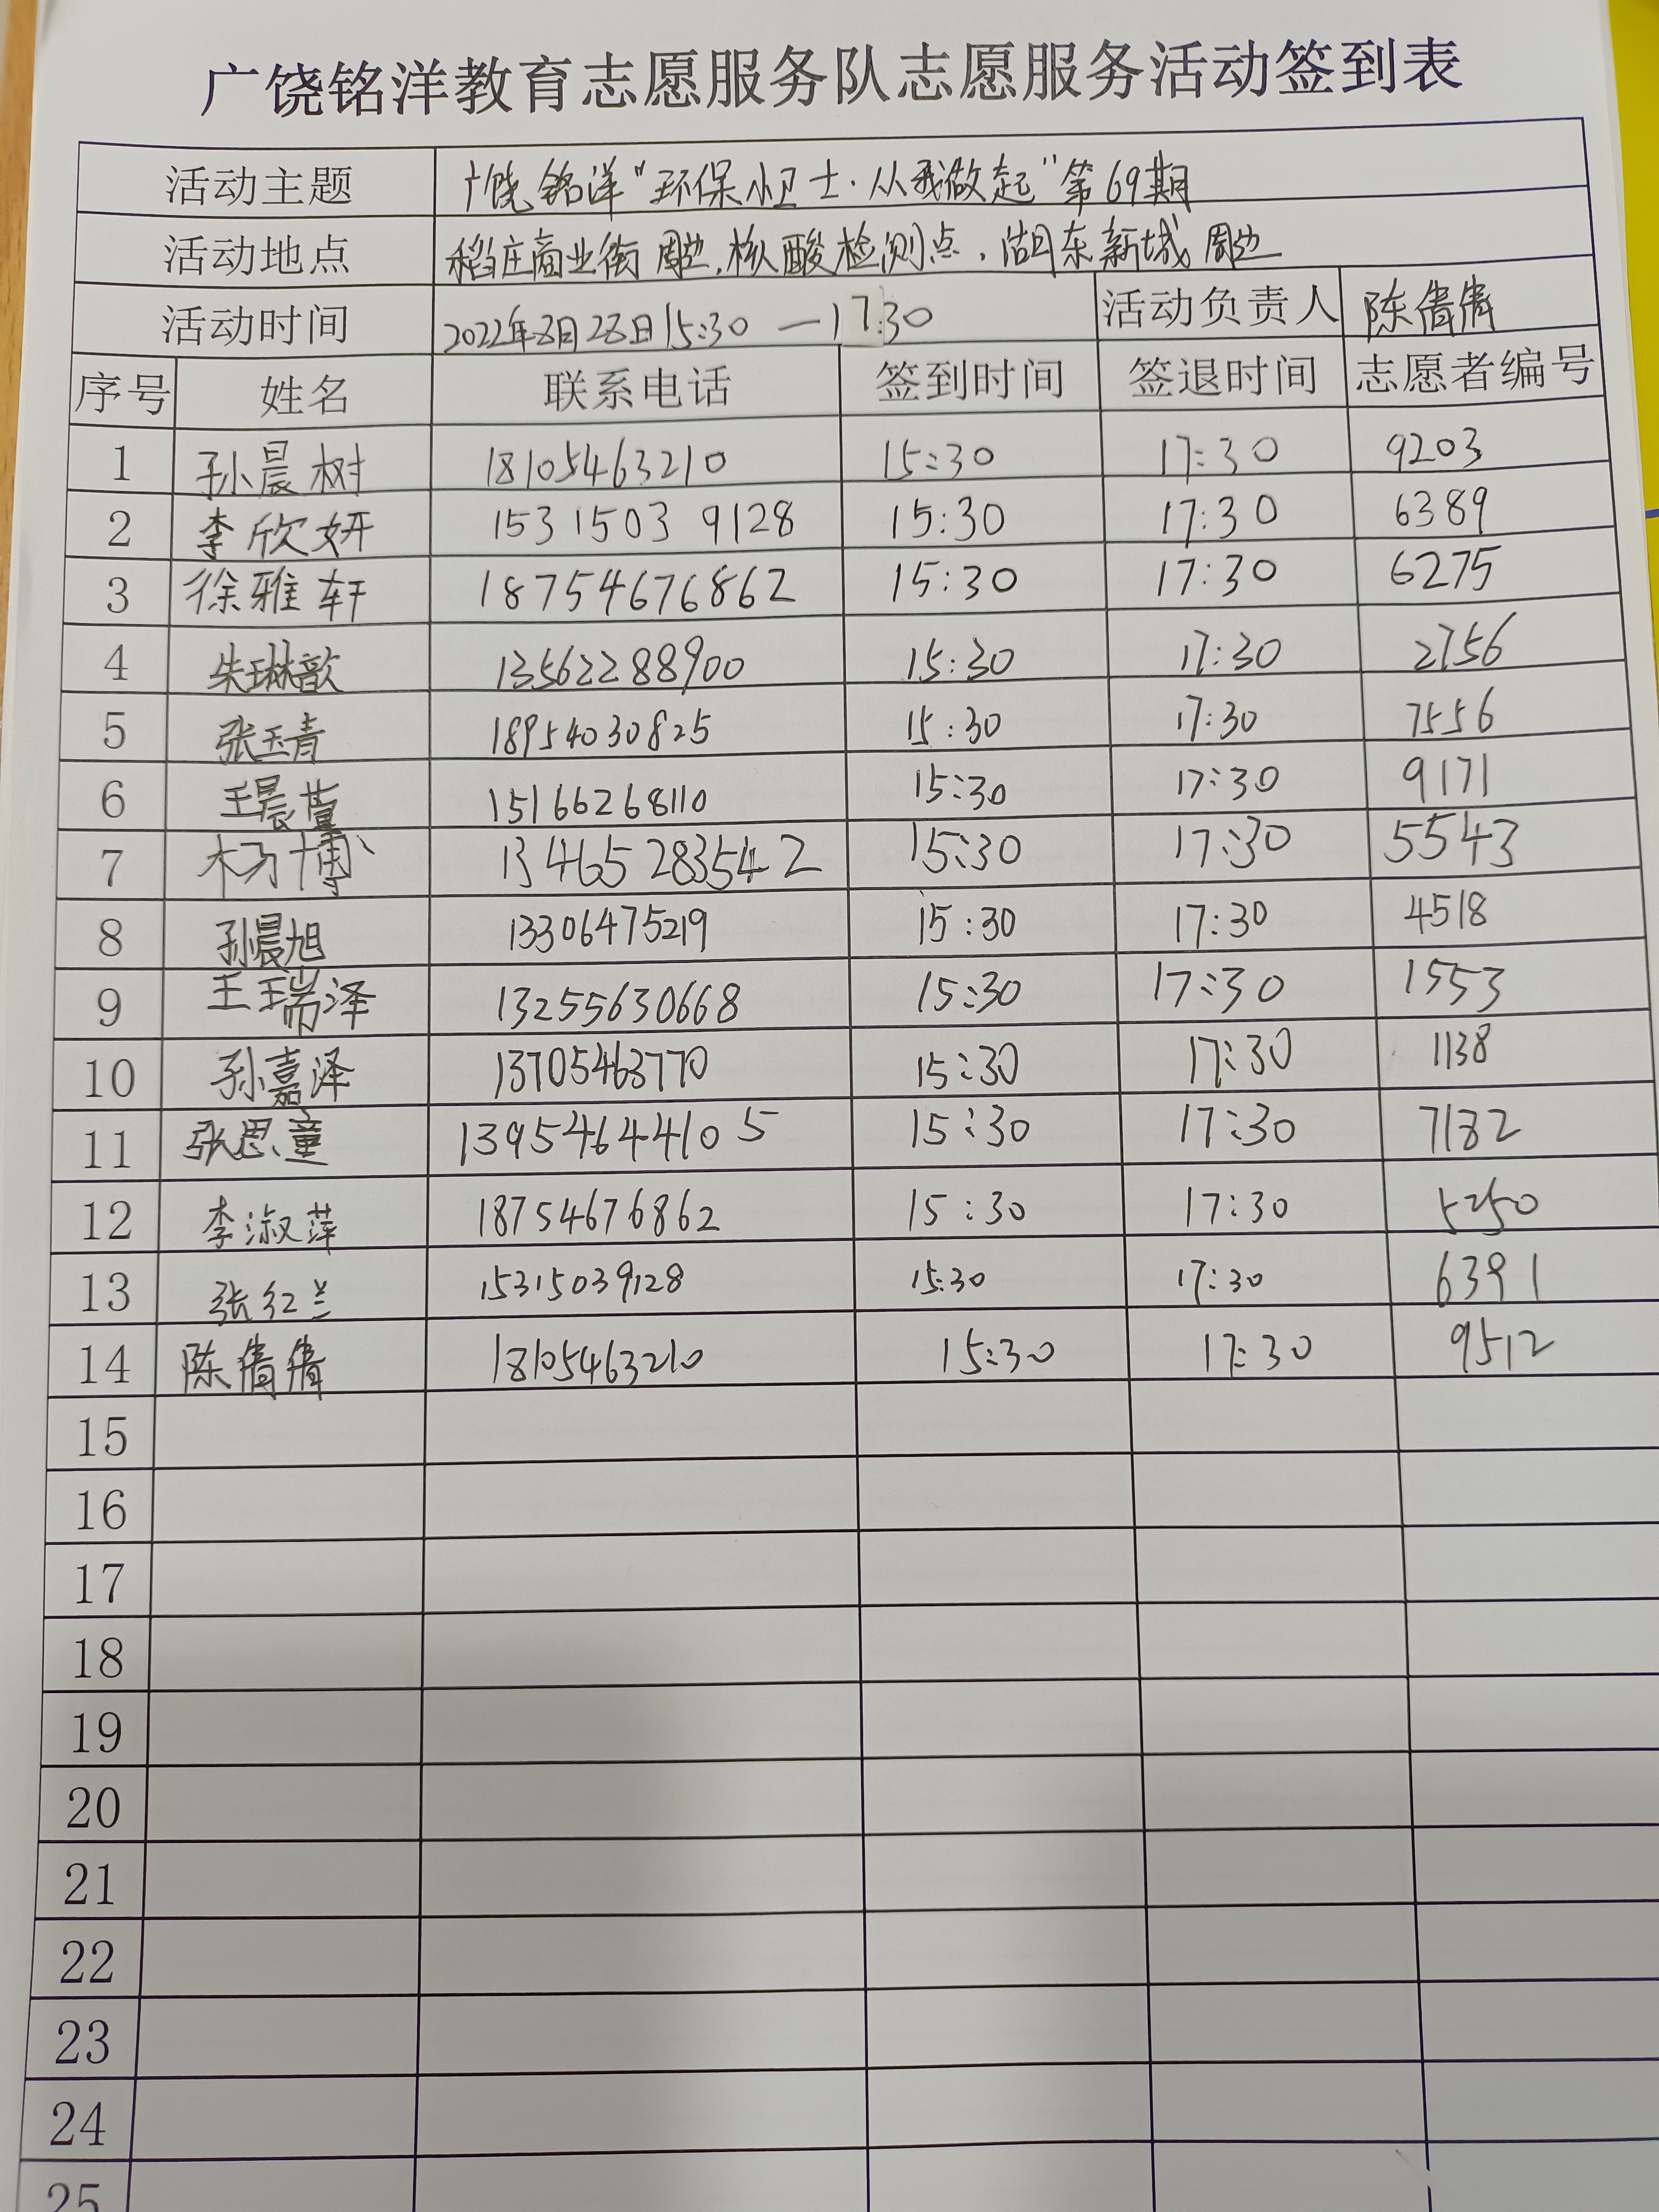 广饶铭洋教育志愿服务队志愿服务活动签到表
活动主题 广饶铭洋“环保小卫士·从我做起”第69期
活动地点 稻庄商业街周边,核酸检测点,湖东新城周边
活动时间 2022年8月28日15:30—17:30 活动负责人 陈倩倩
序号 姓名 联系电话 签到时间 签退时间 志愿者编号
1 孙晨树 18105463210 15:30 17:30 9203
2 李欣妍 15315039128 15:30 17:30 6389
3 徐雅轩 18754676862 15:30 17:30 6275
4 朱琳歆 13562288900 15:30 17:30 2756
5 张玉青 18954030825 15:30 17:30 7556
6 王晨萱 15166268110 15:30 17:30 9171
7 杨博 13465283542 15:30 17:30 5543
8 孙晨旭 13306475219 15:30 17:30 4518
9 王瑞泽 13255630668 15:30 17:30 1553
10 孙嘉泽 13705463770 15:30 17:30 1138
11 张思童 13954644105 15:30 17:30 7182
12 李淑萍 18754676862 15:30 17:30 5250
13 张红兰 15315039128 15:30 17:30 6391
14 陈倩倩 18105463210 15:30 17:30 9512
15
16
17
18
19
20
21
22
23
24
25